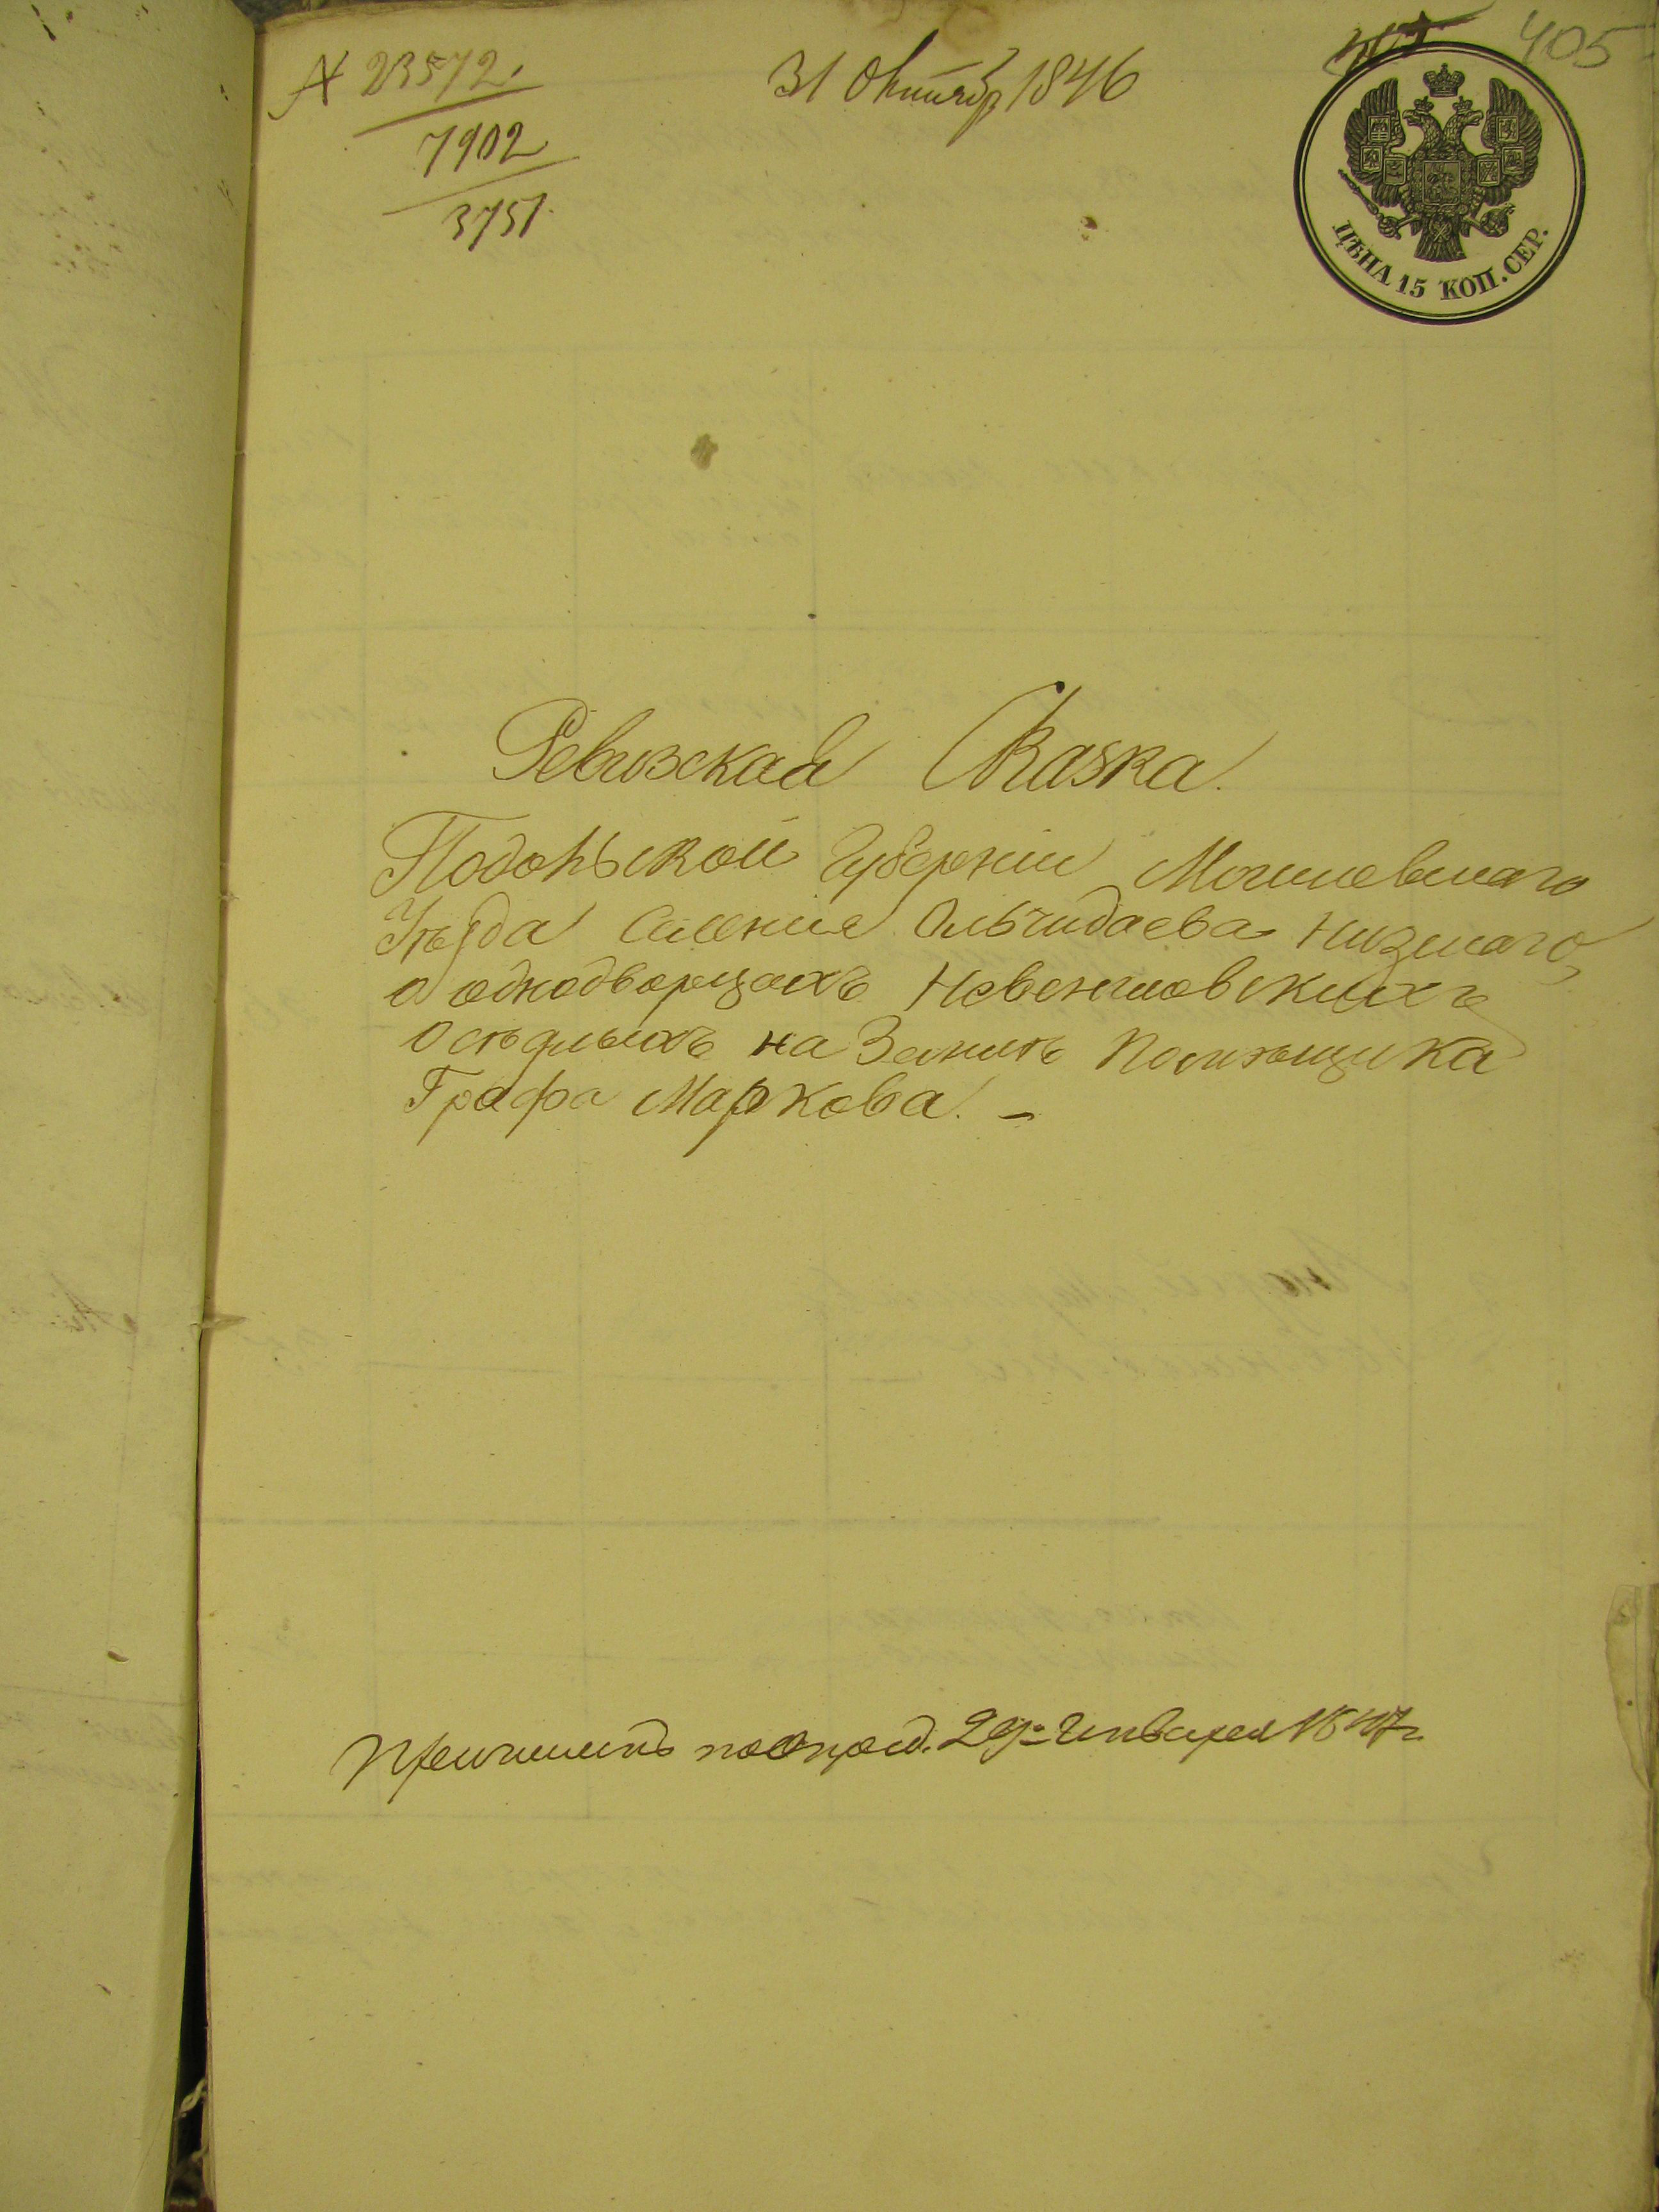 № 23572.
7902
3751.
31 Октябр 1846
405
ЦѢНА 15 КОП. СЕР.
Ревизская Сказка.
Подольской Губерніи Могилевскаго
Уѣзда Селенія Ольчидаева Низшаго,
о однодворцахъ Невенгловскихъ
осѣдлыхъ на Землѣ Помѣщика
Графа Маркова. –
29го Января 1847 г.